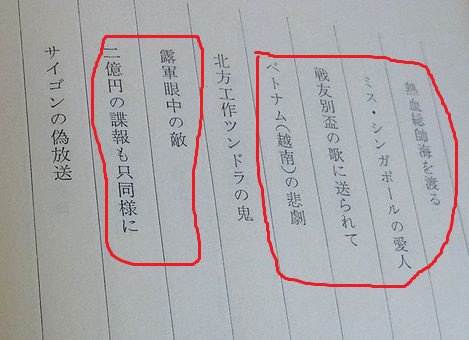 熱血総帥海を渡る
ミス・シンガポールの愛人
戦友別盃の歌に送られて
ベトナム(越南)の悲劇
北方工作ツンドラの鬼
露軍眼中の敵
二億円の諜報も只同様に
サイゴンの偽放送